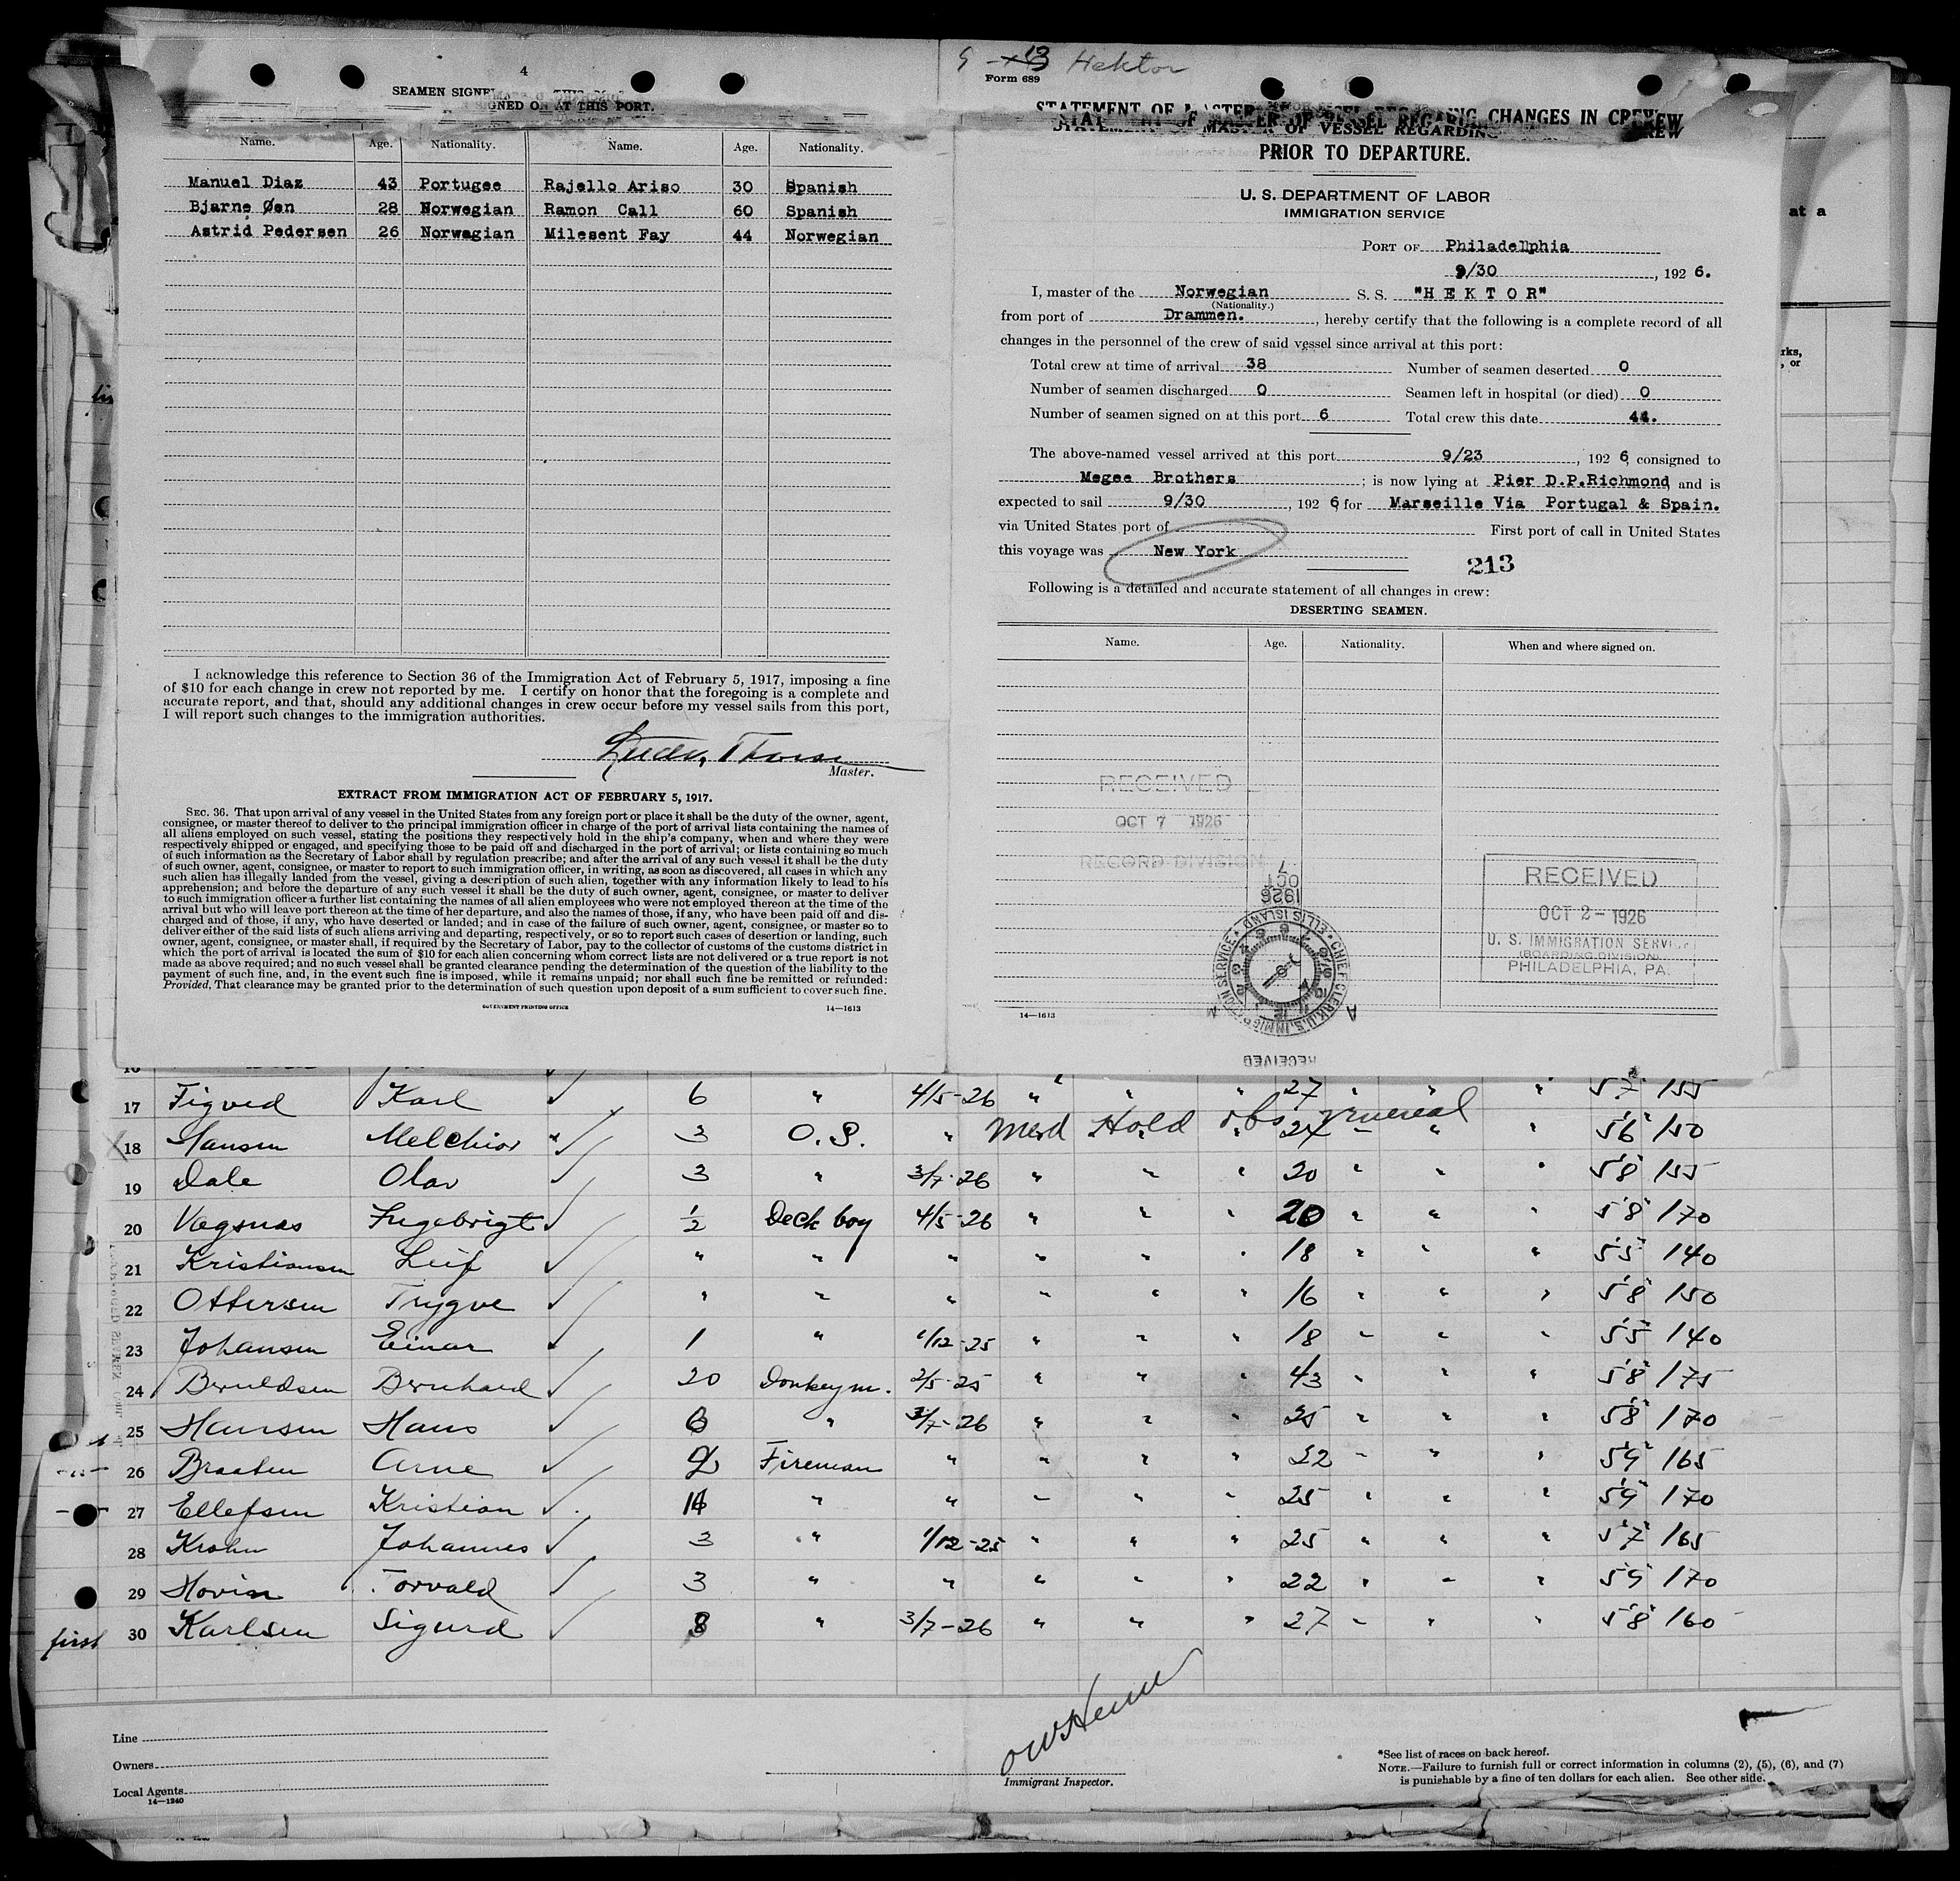 4
SEAMEN SIGNED ON AT THIS PORT.
Name. Age. Nationality. Name. Age. Nationality.
Manuel Diaz 43 Portugee Rajello Ariso 30 Spanish
Bjarne Øen 28 Norwegian Ramon Call 60 Spanish
Astrid Pedersen 26 Norwegian Milesent Fay 44 Norwegian
I acknowledge this reference to Section 36 of the Immigration Act of February 5, 1917, imposing a fine
of $10 for each change in crew not reported by me. I certify on honor that the foregoing is a complete and
accurate report, and that, should any additional changes in crew occur before my vessel sails from this port,
I will report such changes to the immigration authorities.
Master.
EXTRACT FROM IMMIGRATION ACT OF FEBRUARY 5, 1917.
SEC. 36. That upon arrival of any vessel in the United States from any foreign port or place it shall be the duty of the owner, agent,
consignee, or master thereof to deliver to the principal immigration officer in charge of the port of arrival lists containing the names of
all aliens employed on such vessel, stating the positions they respectively hold in the ship's company, when and where they were
respectively shipped or engaged, and specifying those to be paid off and discharged in the port of arrival; or lists containing so much
of such information as the Secretary of Labor shall by regulation prescribe; and after the arrival of any such vessel it shall be the duty
of such owner, agent, consignee, or master to report to such immigration officer, in writing, as soon as discovered, all cases in which any
such alien has illegally landed from the vessel, giving a description of such alien, together with any information likely to lead to his
apprehension; and before the departure of any such vessel it shall be the duty of such owner, agent, consignee, or master to deliver
to such immigration officer a further list containing the names of all alien employees who were not employed thereon at the time of the
arrival but who will leave port thereon at the time of her departure, and also the names of those, if any, who have been paid off and dis-
charged and of those, if any, who have deserted or landed; and in case of the failure of such owner, agent, consignee, or master so to
deliver either of the said lists of such aliens arriving and departing, respectively, or so to report such cases of desertion or landing, such
owner, agent, consignee, or master shall, if required by the Secretary of Labor, pay to the collector of customs of the customs district in
which the port of arrival is located the sum of $10 for each alien concerning whom correct lists are not delivered or a true report is not
made as above required; and no such vessel shall be granted clearance pending the determination of the question of the liability to the
payment of such fine, and, in the event such fine is imposed, while it remains unpaid; nor shall such fine be remitted or refunded:
Provided, That clearance may be granted prior to the determination of such question upon deposit of a sum sufficient to cover such fine.
GOVERNMENT PRINTING OFFICE 14—1613
Hektor
Form 689
STATEMENT OF MASTER OF VESSEL REGARDING CHANGES IN CREW
PRIOR TO DEPARTURE.
U. S. DEPARTMENT OF LABOR
IMMIGRATION SERVICE
PORT OF Philadelphia
9/30, 1926.
I, master of the Norwegian S. S. "HEKTOR"
(Nationality.)
from port of Drammen., hereby certify that the following is a complete record of all
changes in the personnel of the crew of said vessel since arrival at this port:
Total crew at time of arrival 38 Number of seamen deserted 0
Number of seamen discharged 0 Seamen left in hospital (or died) 0
Number of seamen signed on at this port 6 Total crew this date 44.
The above-named vessel arrived at this port 9/23, 1926, consigned to
Megee Brothers; is now lying at Pier D.P.Richmond, and is
expected to sail 9/30, 1926, for Marseille Via Portugal & Spain.
via United States port of First port of call in United States
this voyage was New York
213
Following is a detailed and accurate statement of all changes in crew:
DESERTING SEAMEN.
Name. Age. Nationality. When and where signed on.
RECEIVED
OCT 7 1926
RECORD DIVISION
7
OCT
1926
CHIEF CLERK, U.S. IMMIGRATION SERVICE ELLIS ISLAND
RECEIVED
RECEIVED
OCT 2 - 1926
U. S. IMMIGRATION SERVICE
(BOARDING DIVISION)
PHILADELPHIA, PA.
14—1613
at a
rks,
, or
17 Figved Karl 6 " 4/5-26 " " " 27 " " " 5'7" 155
Med Hold obs venereal
18 Hansen Melchior " 3 O.S. " " " 24 " " " 5'6" 150
19 Dale Olav 3 " 3/7-26 " " " 20 " " " 5'8" 155
20 Vagsnas Ingebrigt 1/2 Deck boy 4/5-26 " " " 20 " " " 5'8" 170
21 Kristiansen Leif " " " " " " 18 " " " 5'5" 140
22 Ottersen Trygve " " " " " " 16 " " " 5'8" 150
23 Johansen Einar 1 " 1/12-25 " " " 18 " " " 5'5" 140
24 Berntdsen Bernhard 20 Donkeym. 2/5-25 " " " 43 " " " 5'8" 175
25 Hansen Hans 6 " 3/7-26 " " " 25 " " " 5'8" 170
26 Braaten Arne 2 Fireman " " " " 22 " " " 5'9" 165
27 Ellefsen Kristian 14 " " " " " 25 " " " 5'9" 170
28 Krohn Johannes 3 " 1/12-25 " " " 25 " " " 5'7" 165
29 Hovin Torvald 3 " " " " " 22 " " " 5'9" 170
first 30 Karlsen Sigurd 8 " 3/7-26 " " " 27 " " " 5'8" 160
Line
Owners
Local Agents
14—1240
Immigrant Inspector.
*See list of races on back hereof.
NOTE.—Failure to furnish full or correct information in columns (2), (5), (6), and (7)
is punishable by a fine of ten dollars for each alien. See other side.